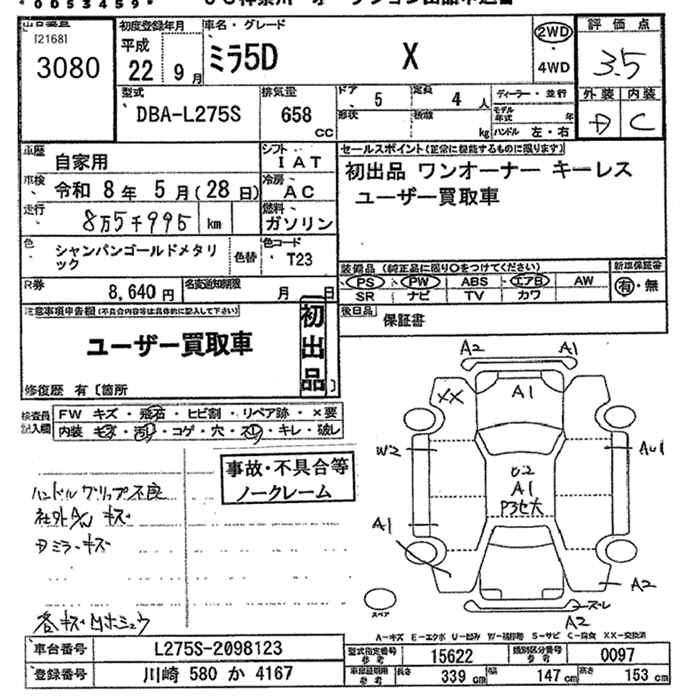 出品番号
[2168]
3080
初度登録年月
平成
22 9 月
車名・グレード
ミラ5D X
2WD
4WD
評価点
3.5
外装 内装
D C
型式
DBA-L275S
排気量
658
CC
ドア
5
定員
4 人
形状
積載
kg
ディーラー・並行
モデル年式 年
ハンドル 左・右
車歴
自家用
シフト
IAT
車検
令和 8 年 5 月(28 日)
冷房
AC
走行
8万5千995 km
燃料
ガソリン
色
シャンパンゴールドメタリック
色替
色コード
T23
R券
8,640 円
名変通知期限
月 日
セールスポイント(正常に機能するものに限ります)
初出品 ワンオーナー キーレス
ユーザー買取車
装備品(純正品に限り○をつけてください)
PS PW ABS エアB AW
SR ナビ TV カワ
新車保証書
有・無
後日品
保証書
注意事項申告欄(不具合内容等は具体的に記入して下さい)
ユーザー買取車
初出品
修復歴 有〔箇所
検査員記入欄
FW キズ・飛石・ヒビ割・リペア跡・×要
内装 キズ・汚れ・コゲ・穴・スレ・キレ・破レ
事故・不具合等
ノークレーム
ハンドルグリップ不良
社外A/W キズ
Dミラーキズ
各キズ
A2 A1
XX
A1
W2
AU1
U2
A1
A1
A2
A2
スペア
A-キズ E-エクボ U-凹み W-補修跡 S-サビ C-腐食 XX-交換済
車台番号
L275S-2098123
登録番号
川崎 580 か 4167
型式指定番号
参考
15622
類別区分番号
参考
0097
長さ 339 cm
幅 147 cm
高さ 153 cm